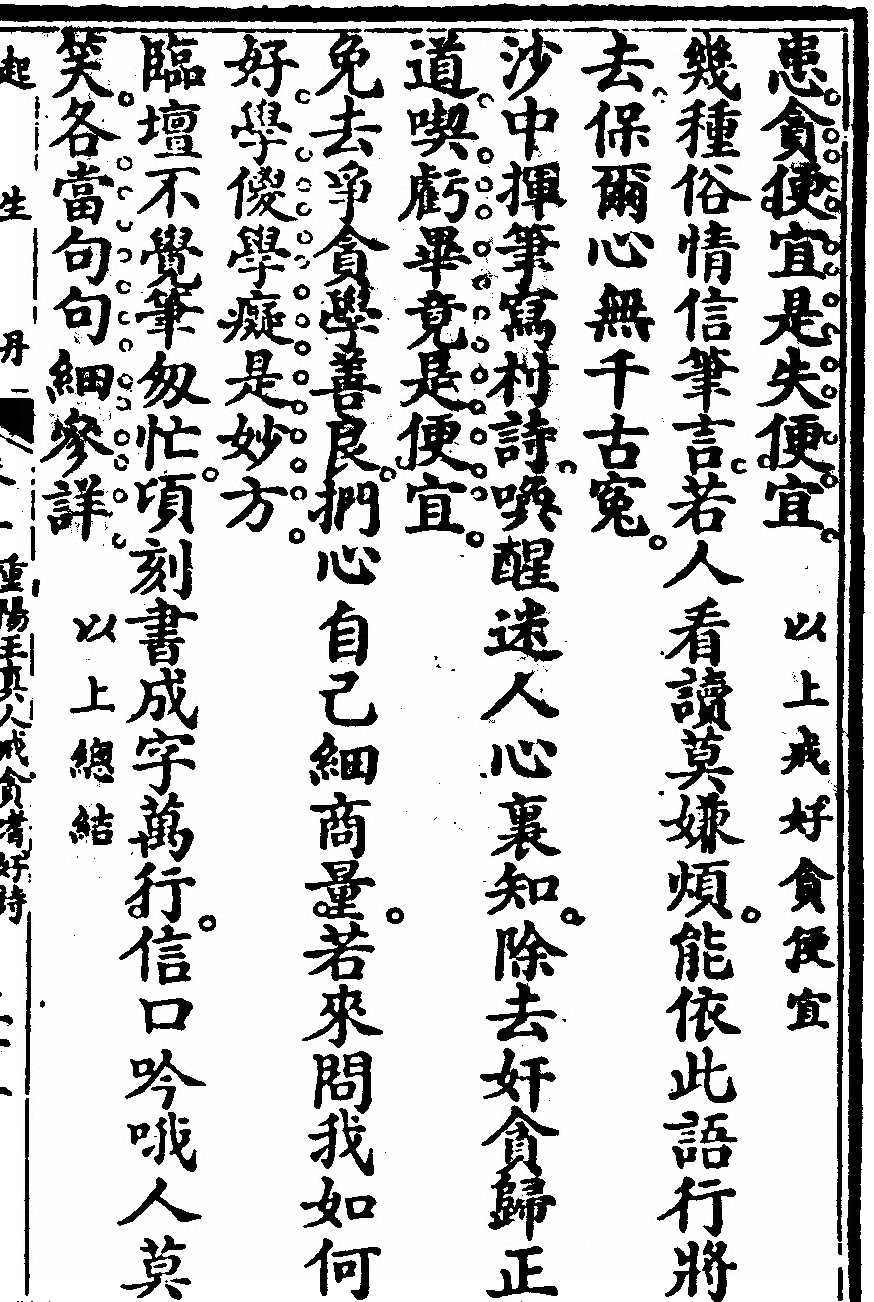 患貪便宜是失便宜　以上戒好貪便宜
幾種俗情信筆言若人看讀莫嫌煩能依此語行將
去保爾心無千古冤
沙中揮筆寫村詩喚醒迷人心裏知除去奸貪歸正
道喫虧畢竟是便宜
免去爭貪學善良捫心自己細商量若來問我如何
好學傻學癡是妙方
臨壇不覺筆匆忙頃刻書成字萬行信口吟哦人莫
笑各當句句細參詳　以上總結
起生丹　重陽王真人戒貪者好時